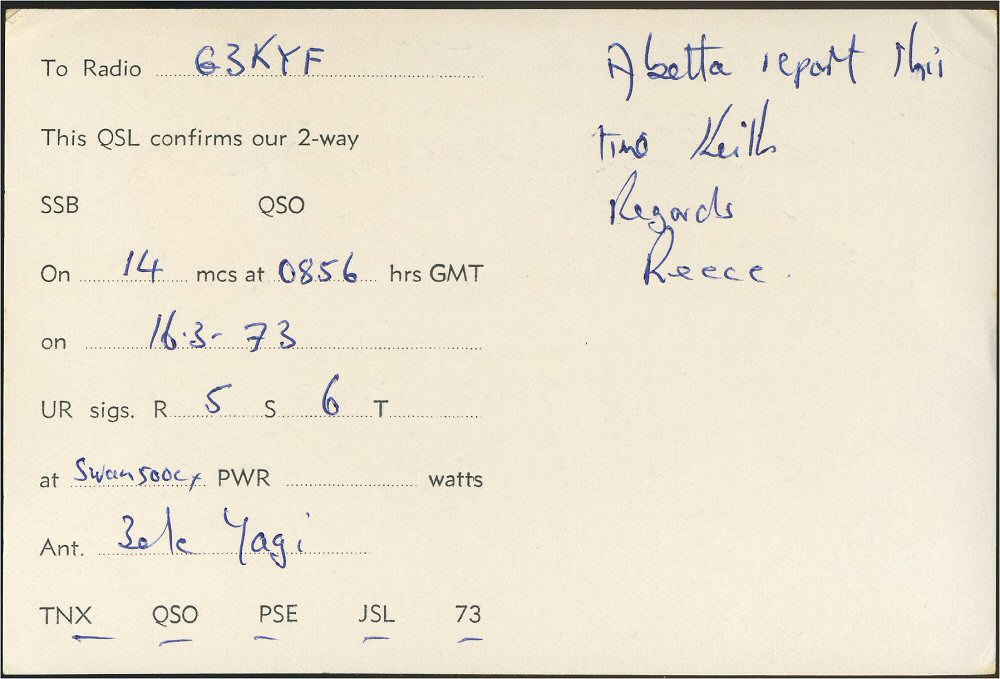 To Radio G3KYF
This QSL confirms our 2-way
SSB QSO
On 14 mcs at 0856 hrs GMT
on 16.3-73
UR sigs. R 5 S 6 T
at Swan 500cx PWR watts
Ant. 3ele Yagi
TNX QSO PSE JSL 73
A betta report this
time Keith
Regards
Reece.